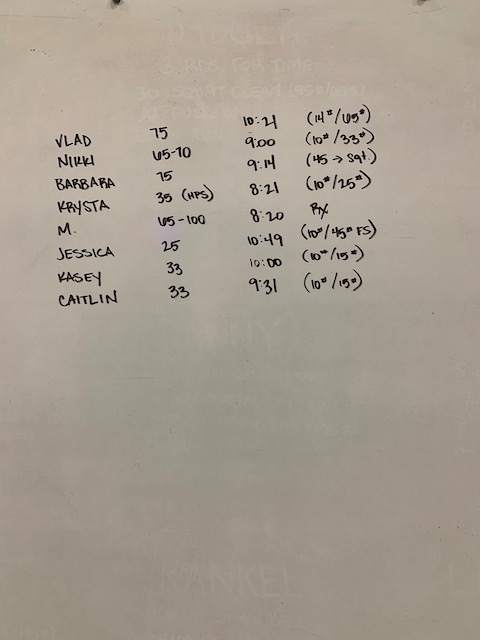 3 RDS FOR TIME
VLAD 75 10:21 (14#/65#)
NIKKI 65-70 9:00 (10#/33#)
BARBARA 75 9:14 (45 → Sqt.)
KRYSTA 35 (HPS) 8:21 (10#/25#)
M. 65-100 8:20 RX
JESSICA 25 10:49 (10#/45# FS)
KASEY 33 10:00 (10#/15#)
CAITLIN 33 9:31 (10#/15#)
KANKEL